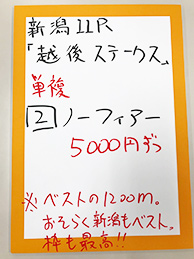 新潟11R
「越後ステークス」
単複
2 ノーフィアー
5000円ずつ
※ベストの1200m。
おそらく新潟もベスト。
枠も最高!!